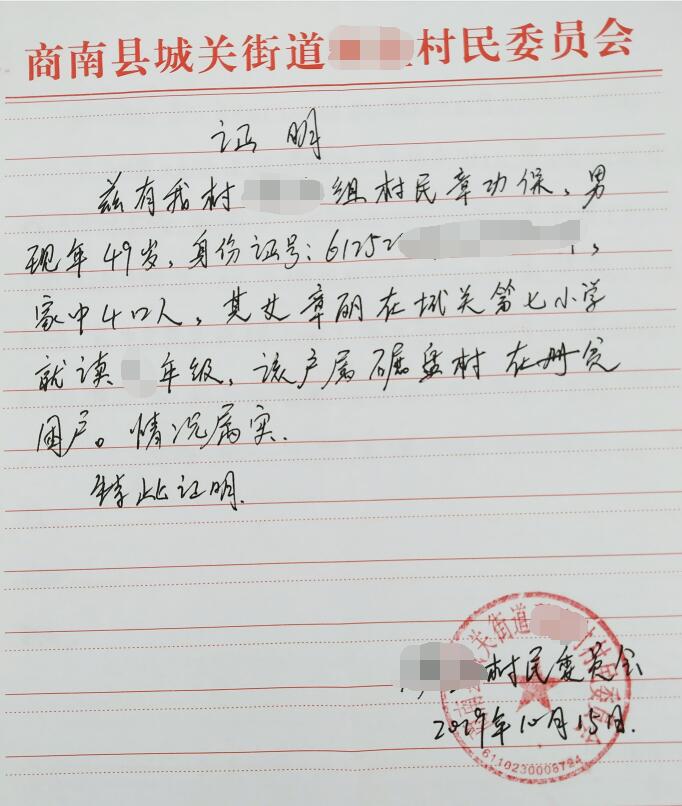 商南县城关街道 村民委员会
证明
兹有我村 组村民章功保、男
现年49岁,身份证号:61252
家中4口人,其女章丽在城关第七小学
就读 年级,该户属碾盘村在册贫
困户。情况属实.
特此证明.
村民委员会
2019年10月15日.
关街道 村村民委员会
6110230008724